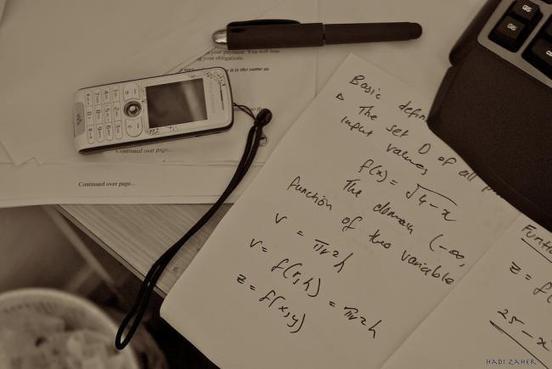 it is the same as
Continued over page...
Continued over page...
Basic defin
The set D of all
input values
f(x) = √4-x
The domain (-∞
function of two variable
V = πr²h
V = f(r,h) = πr²h
z = f(x,y)
Functi
z = f(
25 - x
HADI ZAHER